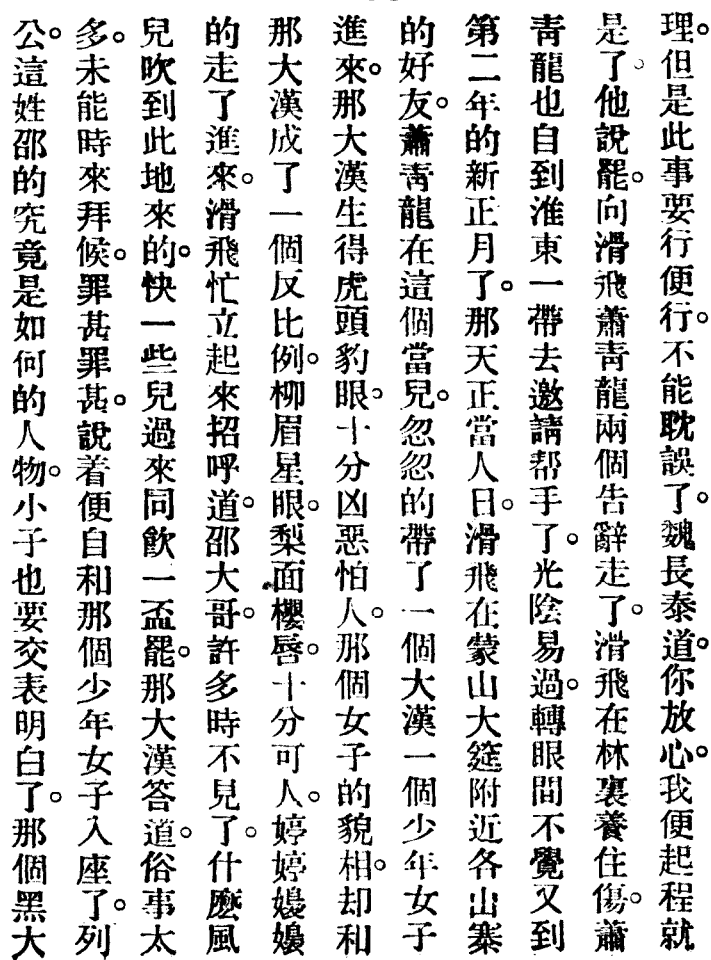 理。但是此事要行便行。不能耽誤了。魏長泰道。你放心。我便起程就
是了。他說罷。向滑飛蕭靑龍兩個告辭走了。滑飛在林裏養住傷。蕭
靑龍也自到淮東一帶去邀請帮手了。光陰易過。轉眼間不覺又到
第二年的新正月了。那天正當人日。滑飛在蒙山大筵附近各山寨
的好友。蕭靑龍在這個當兒。忽忽的帶了一個大漢一個少年女子
進來。那大漢生得虎頭豹眼。十分凶惡怕人。那個女子的貌相。却和
那大漢成了一個反比例。柳眉星眼。梨面櫻唇。十分可人。婷婷嫚嫚
的走了進來。滑飛忙立起來招呼道。邵大哥。許多時不見了。什麽風
兒吹到此地來的。快一些兒過來同飮一盃罷。那大漢答道。俗事太
多。未能時來拜候。罪甚罪甚。說着便自和那個少年女子入座了。列
公。這姓邵的究竟是如何的人物。小子也要交表明白了。那個黑大